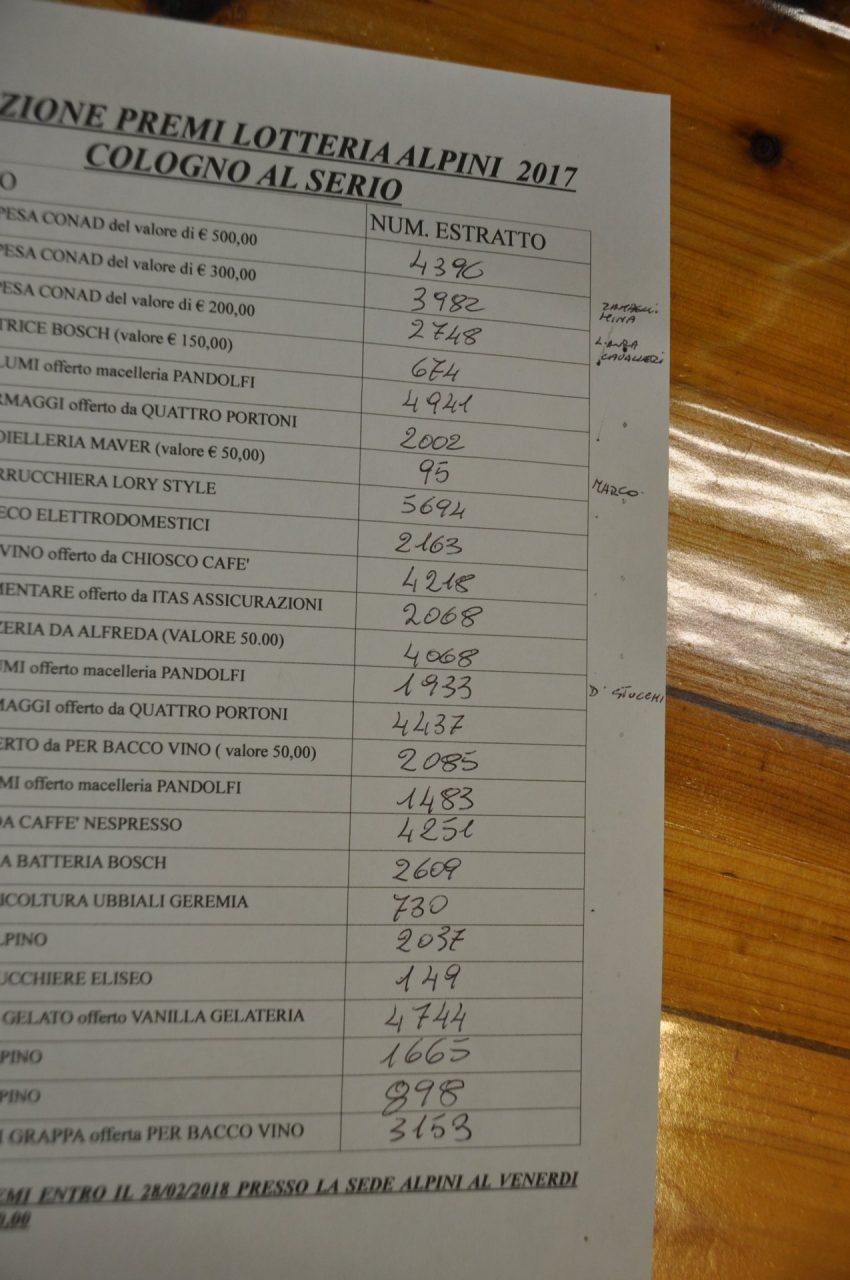 ZIONE PREMI LOTTERIA ALPINI 2017
COLOGNO AL SERIO
O NUM. ESTRATTO
PESA CONAD del valore di € 500,00 4396
PESA CONAD del valore di € 300,00 3982
PESA CONAD del valore di € 200,00 2748
TRICE BOSCH (valore € 150,00) 674
LUMI offerto macelleria PANDOLFI 4941
RMAGGI offerto da QUATTRO PORTONI 2002
OIELLERIA MAVER (valore € 50,00) 95
RRUCCHIERA LORY STYLE 5694 MARCO
ECO ELETTRODOMESTICI 2163
VINO offerto da CHIOSCO CAFE' 4218
MENTARE offerto da ITAS ASSICURAZIONI 2068
ZERIA DA ALFREDA (VALORE 50.00) 4068
UMI offerto macelleria PANDOLFI 1933 D' STUCCHI
MAGGI offerto da QUATTRO PORTONI 4437
ERTO da PER BACCO VINO ( valore 50,00) 2085
MI offerto macelleria PANDOLFI 1483
DA CAFFE' NESPRESSO 4251
A BATTERIA BOSCH 2609
ICOLTURA UBBIALI GEREMIA 730
LPINO 2037
UCCHIERE ELISEO 149
GELATO offerto VANILLA GELATERIA 4744
PINO 1665
PINO 898
I GRAPPA offerta PER BACCO VINO 3153
EMI ENTRO IL 28/02/2018 PRESSO LA SEDE ALPINI AL VENERDI
0.00